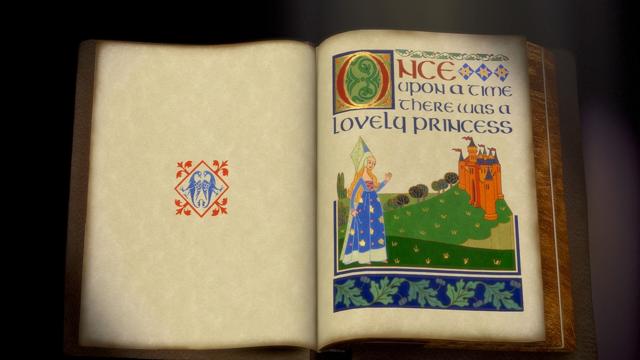 ONCE
UPON A TIME
THERE WAS A
LOVELY PRINCESS